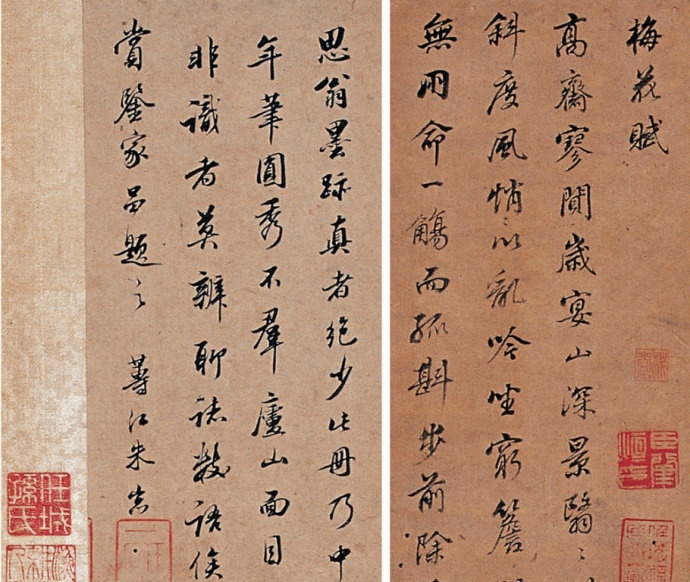 梅花賦
高齋寥閴歲宴山深景翳〻
斜度風悄〻以亂吟坐窮簷
無朋命一觴而孤斟步前除
思翁墨跡真者絕少此冊乃中
年筆圓秀不羣廬山面目
非識者莫辨聊誌數語俟
賞鑒家品題之 江朱
任城孫氏